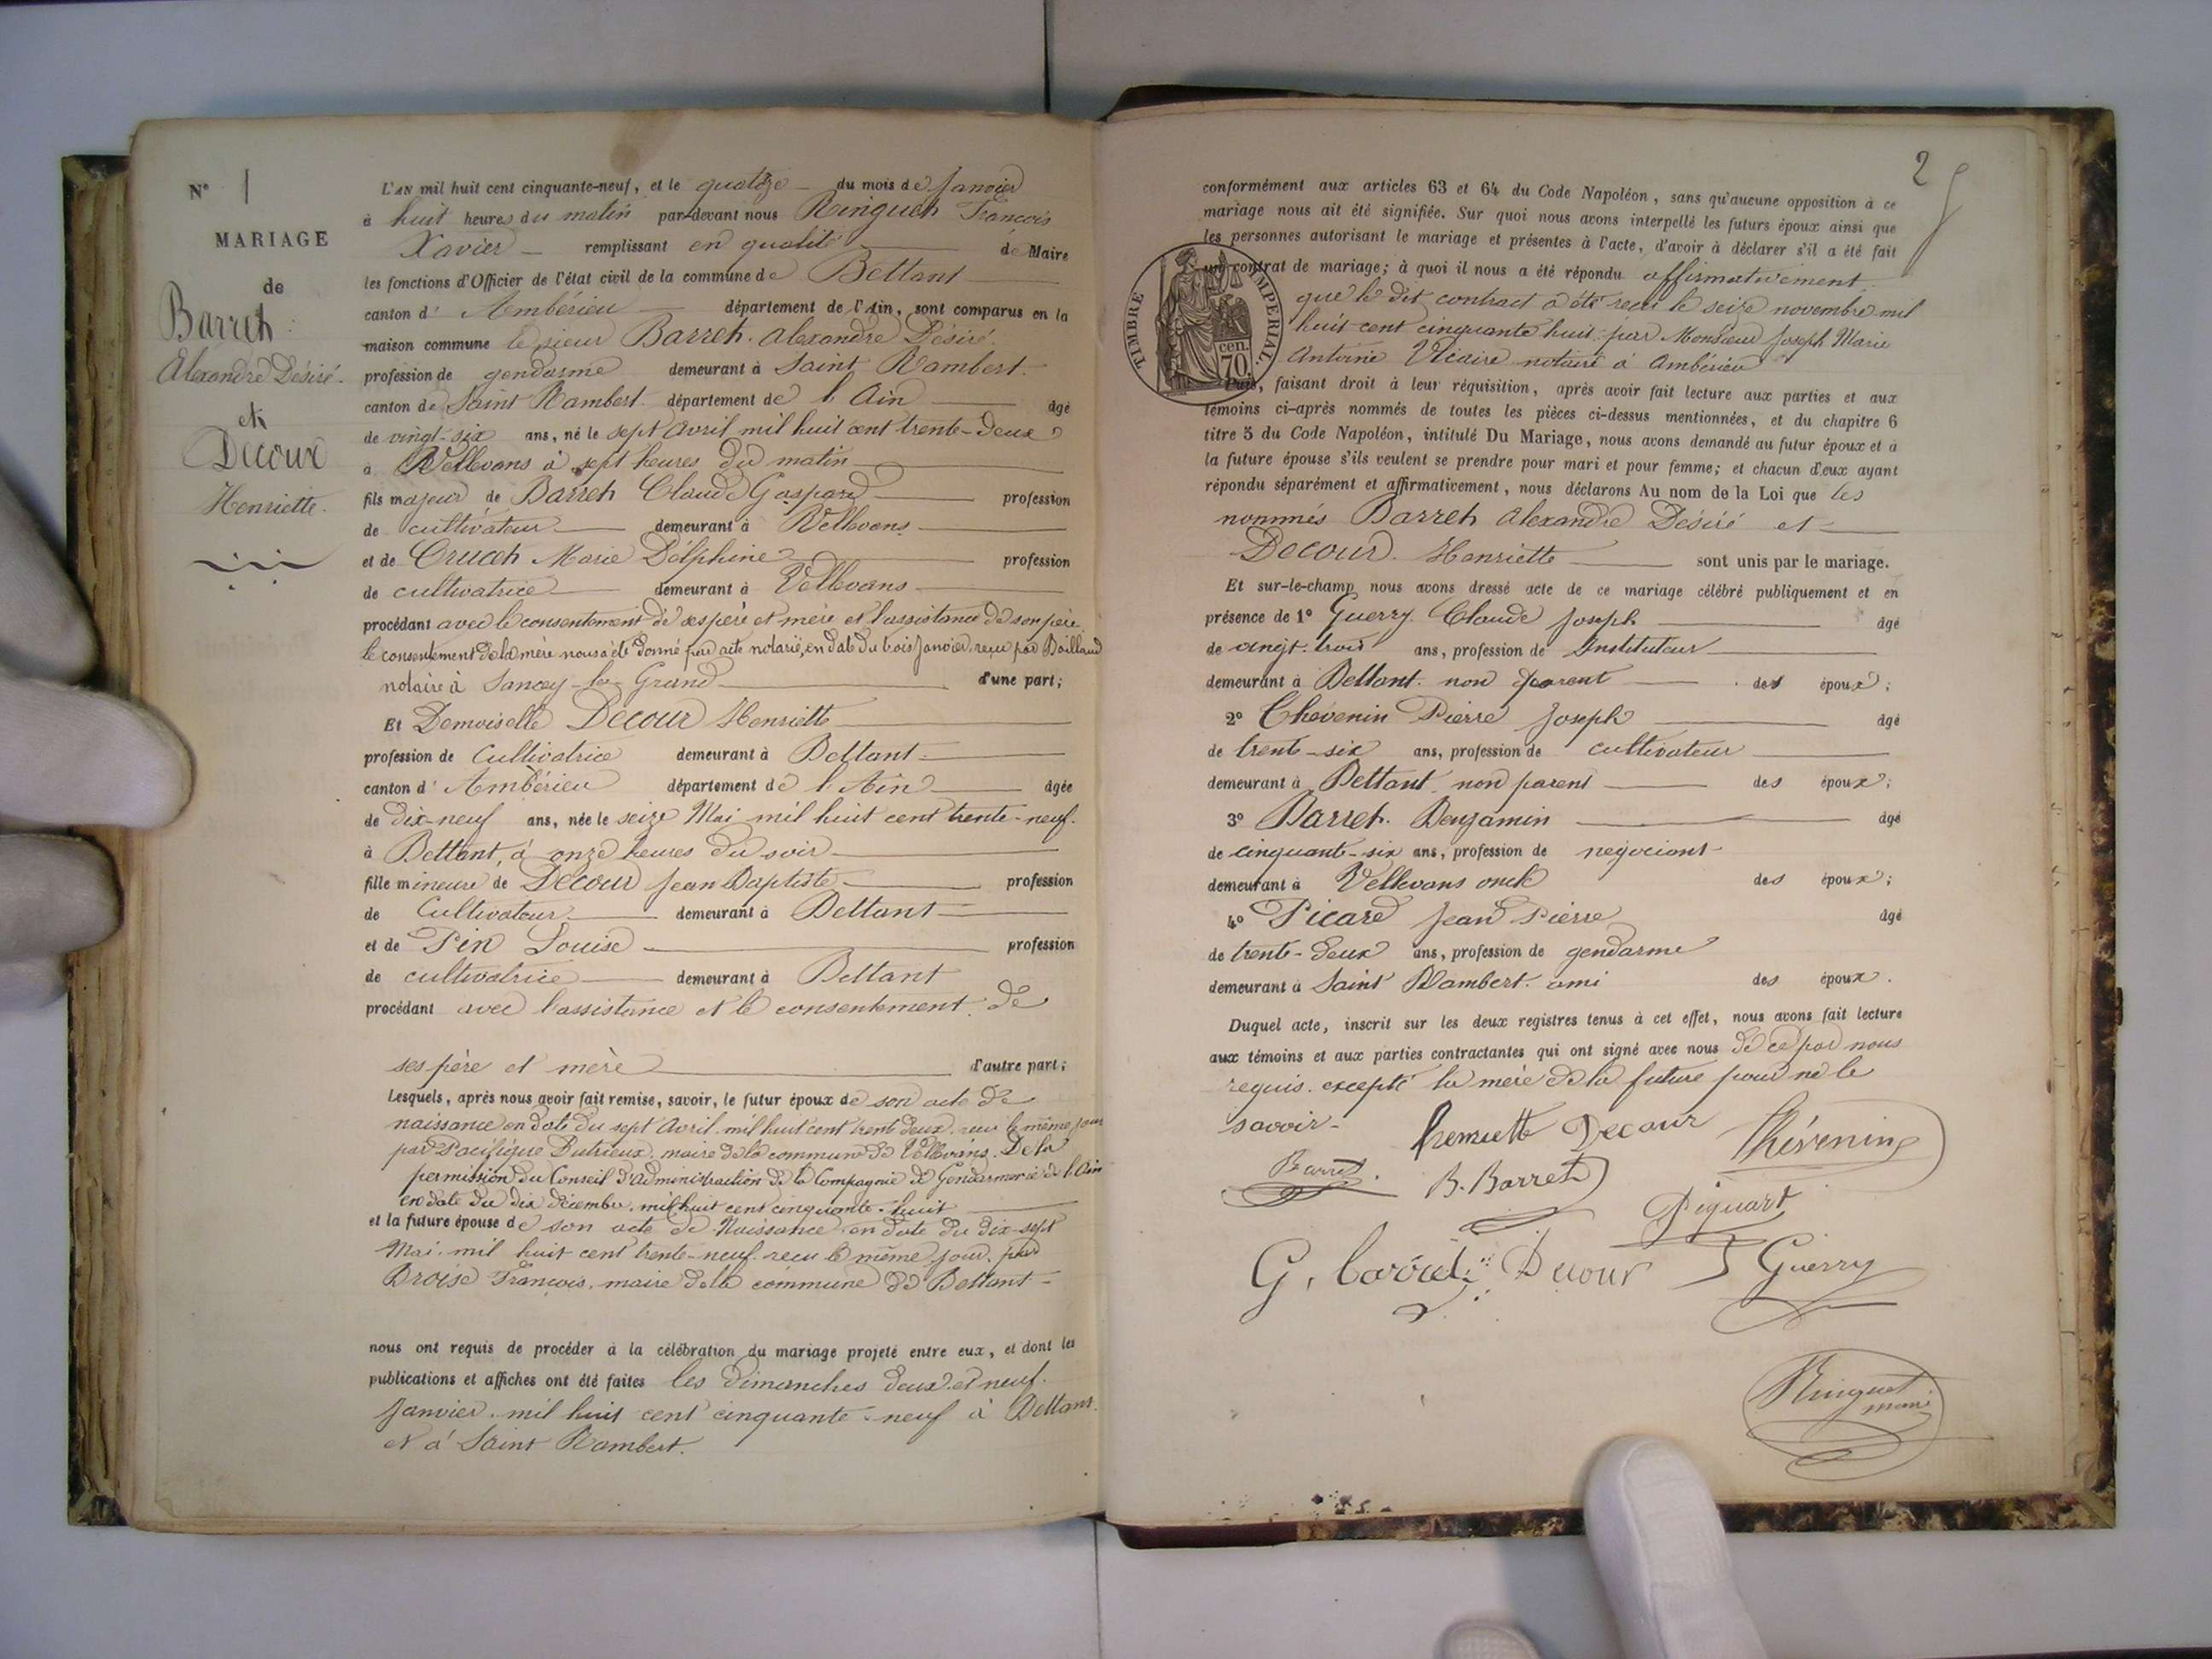 N° 1
MARIAGE
de
Barret
Alexandre Désiré.
et
Decour
Henriette.
L'AN mil huit cent cinquante-neuf, et le quatorze du mois de Janvier
à huit heures du matin par-devant nous Ringuet François
Xavier remplissant en qualité de Maire
les fonctions d'Officier de l'état civil de la commune de Bettant
canton d' Ambérieu département de l'Ain, sont comparus en la
maison commune le sieur Barret. Alexandre Désiré.
profession de gendarme demeurant à Saint Rambert.
canton de Saint Rambert. département de l'Ain âgé
de vingt-six ans, né le sept avril mil huit cent trente-deux
à Vellevans à sept heures du matin
fils majeur de Barret Claude Gaspard profession
de cultivateur demeurant à Vellevans
et de Cruch Marie Délphine profession
de cultivatrice demeurant à Vellevans
procédant avec le consentement de ses père et mère et l'assistance de son père
le consentement de la mère nous a été donné par acte notarié, en date du trois Janvier, reçu par Baillaud
notaire à Sancey-le-Grand d'une part;
Et Demoiselle Decour Henriette
profession de Cultivatrice demeurant à Bettant
canton d' Ambérieu département de l'Ain âgée
de dix-neuf ans, née le seize Mai mil huit cent trente-neuf.
à Bettant, à onze heures du soir
fille mineure de Decour Jean Baptiste profession
de Cultivateur demeurant à Bettant
et de Pin Louise profession
de cultivatrice demeurant à Bettant
procédant avec l'assistance et le consentement de
ses père et mère d'autre part;
Lesquels, après nous avoir fait remise, savoir, le futur époux de son acte de
naissance en date du sept Avril mil huit cent trente deux, reçu le même jour
par Pacifique Dutrieux, maire de la commune de Vellevans. De la
permission du Conseil d'administration de la Compagnie de Gendarmerie de l'Ain
en date du dix décembre mil huit cent cinquante-huit
et la future épouse de son acte de Naissance en date du dix-sept
Mai mil huit cent trente-neuf reçu le même jour par
Broise François, maire de la commune de Bettant
nous ont requis de procéder à la célébration du mariage projeté entre eux, et dont les
publications et affiches ont été faites les dimanches deux et neuf
Janvier mil huit cent cinquante-neuf à Bettant
et à Saint Rambert.
2
conformément aux articles 63 et 64 du Code Napoléon, sans qu'aucune opposition à ce
mariage nous ait été signifiée. Sur quoi nous avons interpellé les futurs époux ainsi que
les personnes autorisant le mariage et présentes à l'acte, d'avoir à déclarer s'il a été fait
un contrat de mariage; à quoi il nous a été répondu affirmativement
que le dit contract a été reçu le seize novembre mil
huit cent cinquante huit par Monsieur Joseph Marie
Antoine Vicaire notaire à Ambérieu
TIMBRE IMPERIAL.
cen.
70.
Puis, faisant droit à leur réquisition, après avoir fait lecture aux parties et aux
témoins ci-après nommés de toutes les pièces ci-dessus mentionnées, et du chapitre 6
titre 5 du Code Napoléon, intitulé Du Mariage, nous avons demandé au futur époux et à
la future épouse s'ils veulent se prendre pour mari et pour femme; et chacun d'eux ayant
répondu séparément et affirmativement, nous déclarons Au nom de la Loi que les
nommés Barret Alexandre Désiré et
Decour Henriette sont unis par le mariage.
Et sur-le-champ nous avons dressé acte de ce mariage célébré publiquement et en
présence de 1° Guerry Claude Joseph âgé
de vingt-trois ans, profession de Instituteur
demeurant à Bettant non parent des époux;
2° Thévenin Pierre Joseph âgé
de trente-six ans, profession de cultivateur
demeurant à Bettant, non parent des époux;
3° Barret. Benjamin âgé
de cinquante-six ans, profession de négociant
demeurant à Vellevans oncle des époux;
4° Picard Jean Pierre âgé
de trente-deux ans, profession de gendarme
demeurant à Saint Rambert. ami des époux.
Duquel acte, inscrit sur les deux registres tenus à cet effet, nous avons fait lecture
aux témoins et aux parties contractantes qui ont signé avec nous de ce par nous
requis. excepté la mère de la future pour ne le
savoir-
henriette Decour Thévenin
Barret. B. Barret
Piquart
G. barret Decour J Guerry
Ringuet
maire